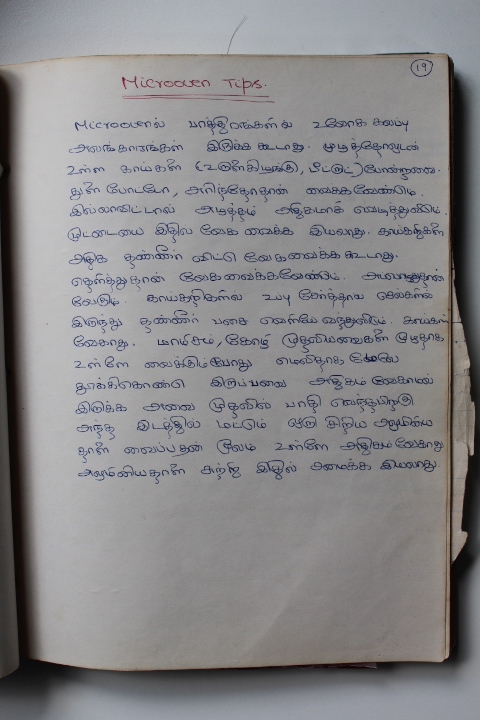 19
Microoven Tips.
Microovenல் பாத்திரங்களில் உலோக கலப்பு
அலங்காரங்கள் இருக்க கூடாது. முழுத்தோலுடன்
உள்ள காய்கள் (உருளைகிழங்கு, பீட்ரூட்) போன்றவை.
துளை போட்டோ, அரிந்தோதான் வைக்கவேண்டும்.
இல்லாவிட்டால் அழுத்தம் அதிகமாகி வெடித்துவிடும்.
முட்டையை இதில் வேக வைக்க இயலாது. காய்கறிகள்
அதிக தண்ணீர் விட்டு வேகவைக்க கூடாது.
தெளித்துதான் வேகவைக்கவேண்டும். அப்பொழுதுதான்
வேகும். காய்கறிகளில் உப்பு சேர்த்தால் செல்களில்
இருந்து தண்ணீர் பசை வெளியே வந்துவிடும். காய்கள்
வேகாது. மாமிசம், கோழி முதலியவைகள் முழுதாக
உள்ளே வைக்கும்போது மெலிதாக மேலே
தூக்கிகொண்டு இருப்பவை அதிகம் வேகாமல்
இருக்க அவை முதலில் பாதி வெந்தபிறகு
அந்த இடத்தில் மட்டும் ஒரு சிறிய அலுமினிய
தாள் வைப்பதன் மூலம் உள்ளே அதிகம் வேகாது
அலுமினியதாள் சுற்றி இதில் சமைக்க இயலாது.